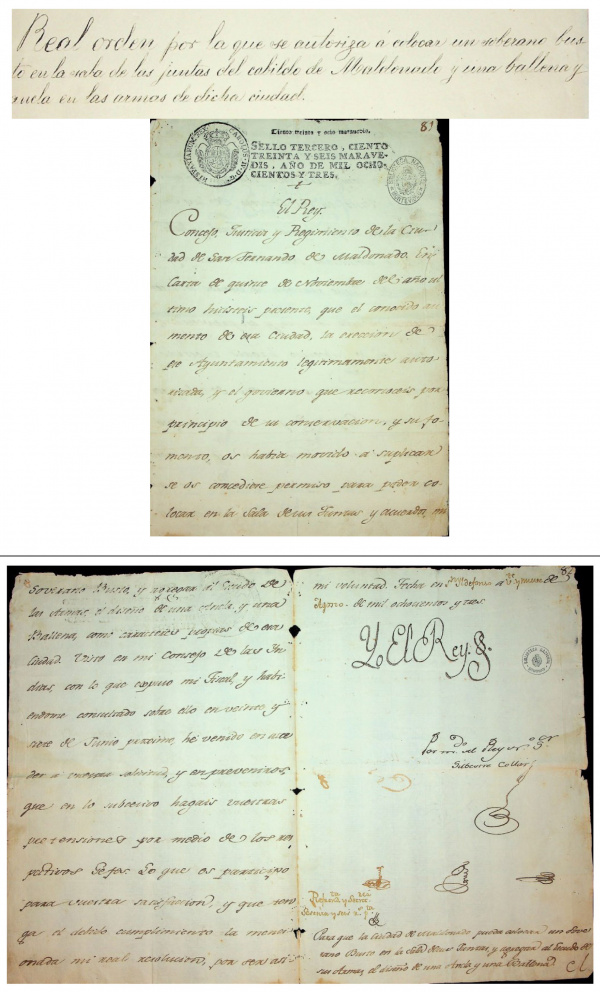 Real orden por la que se autoriza á colocar un soberano bus
to en la sala de las juntas del cabildo de Maldonado y una ballena y
en las armas de dicha ciudad.
81
Ciento treinta y seis maravedis.
SELLO TERCERO, CIENTO
TREINTA Y SEIS MARAVE-
DIS, AÑO DE MIL OCHO-
CIENTOS Y TRES.
El Rey.
Concejo, Justicia y Regimiento de la Ciu-
dad de San Fernando de Maldonado. En
Carta de quince de Noviembre del año ul
timo hicisteis presente, que el conocido au
mento de esa Ciudad, la ereccion de
ese Ayuntamiento legitimamente auto-
rizada, y el govierno que reconoceis por
principio de su conservacion, y su fo-
mento, os habia movido á suplicar
se os concediese permiso para poder co-
locar en la Sala de sus Juntas y acuerdos, mi
Soverano Busto, y agregar al Escudo de
las Armas, el diseño de una Ancla, y una
Ballena, como caracteres propios de esa
Ciudad. Visto en mi Consejo de las In
dias, con lo que expuso mi Fiscal, y habi
endome consultado sobre ello en veinte y
siete de Junio proximo, he venido en acce
der á vuestra solicitud, y en preveniros,
que en lo subcesivo hagais vuestras
pretensiones por medio de los res
pectivos Gefes. Lo que os participo
para vuestra satisfaccion, y que ten
ga el debido cumplimiento la menci
onada mi real resolucion, por ser asi
mi voluntad. Fecha en Sn. Ildefonso a de
Agosto de mil ochocientos y tres
Yo El Rey
Por mdo. del Rey nro. Sor.
Silvestre Collar
Para que la Ciudad de Maldonado pueda colocar un Sove
rano Busto en la Sala de sus Juntas, y agregar al Escudo de
sus Armas, el diseño de una Ancla y una Ballena